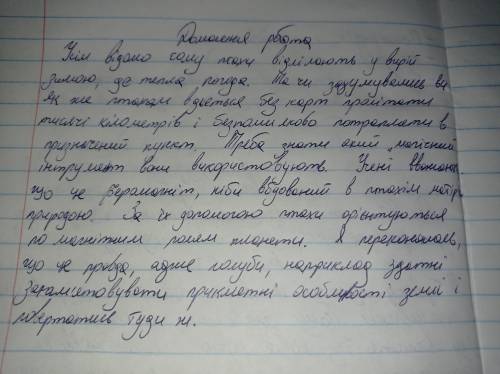 Домашня рбота
Усім відомо чому птахи відлітають у вирій
зимою, де тепла погода. Та чи задумувались ви
як же птахам вдається без карт пролітати
тисячі кілометрів і безпомилково потрапляти в
призначений пункт. Треба знати який „магічний
інтрумент вони використовують. Учені вважають
що це феромагніт, ніби вбудований в птахів
природою. За їх допомогою птахи орієнтуються
по магнітним полем планети. Я переконалась,
що це правда, адже голуби, наприклад здатні
запам'ятовувати прикметні особливості землі і
повертатись туди ж.